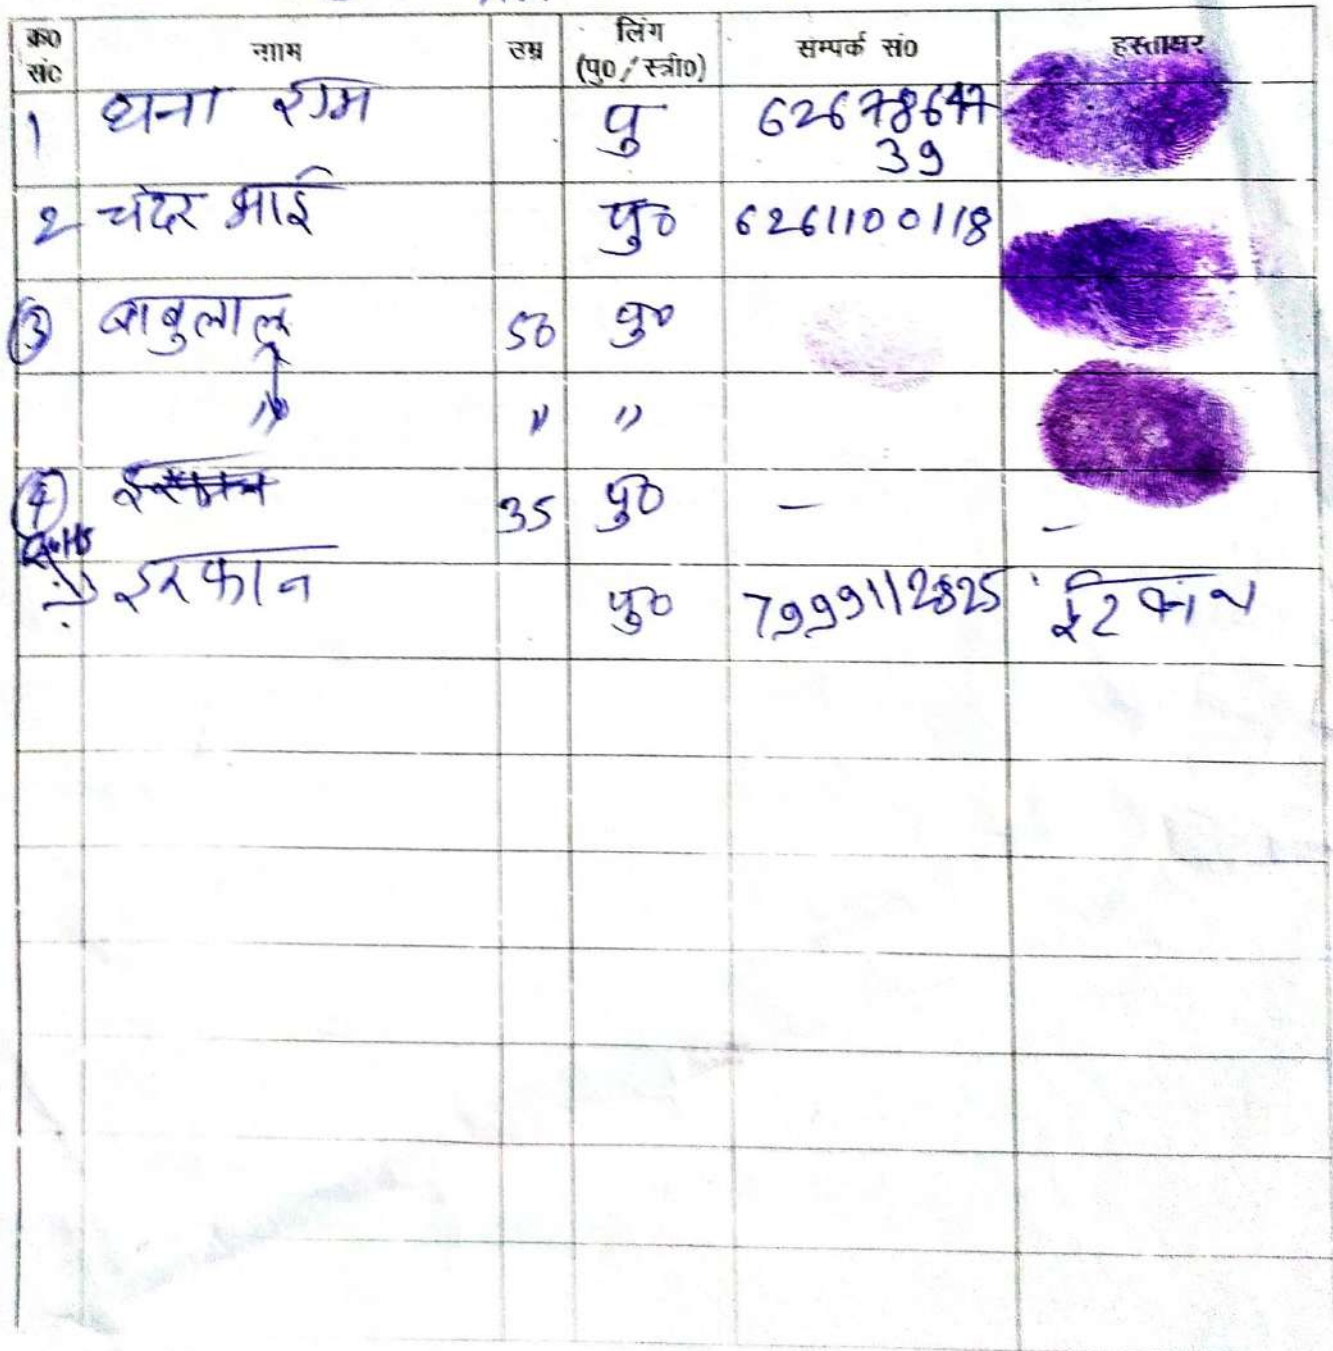 क्र० सं० नाम उम्र लिंग (पु० / स्त्री०) सम्पर्क सं० हस्ताक्षर
1 धना राम पु 62678647
39
2 चंदर भाई पु० 6261100118
3 बाबुलाल 50 पु०
" " "
4 35 पु० - -
इरफान पु० 7999112825